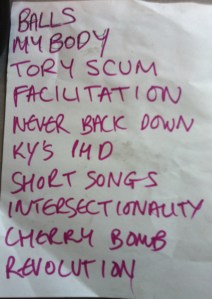 BALLS
MY BODY
TORY SCUM
FACILITATION
NEVER BACK DOWN
KY'S IHD
SHORT SONGS
INTERSECTIONALITY
CHERRY BOMB
REVOLUTION